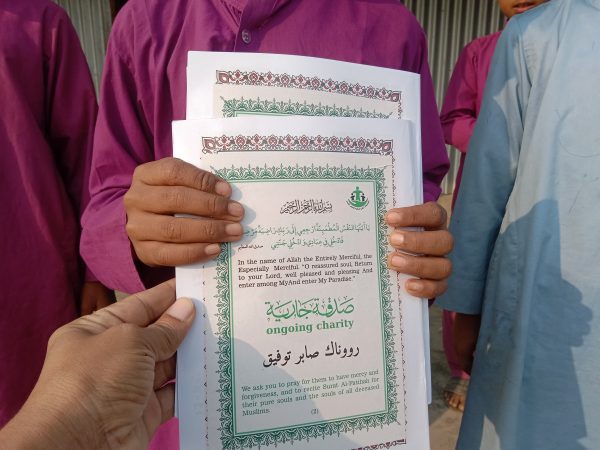 بسم الله الرحمن الرحيم
يَا أَيَّتُهَا النَّفْسُ الْمُطْمَئِنَّةُ ارْجِعِي إِلَى رَبِّكِ رَاضِيَةً
فَادْخُلِي فِي عِبَادِي وَادْخُلِي جَنَّتِي
صدق الله العظيم
In the name of Allah the Entirely Merciful, the
Especially Merciful. "O reassured soul, Return
to your Lord, well pleased and pleasing And
enter among MyAnd enter My Paradise."
صدقة جارية
ongoing charity
رووناك صابر توفيق
We ask you to pray for them to have mercy and
forgiveness, and to recite Surat Al-Fatihah for
their pure souls and the souls of all deceased
Muslims.
(2)